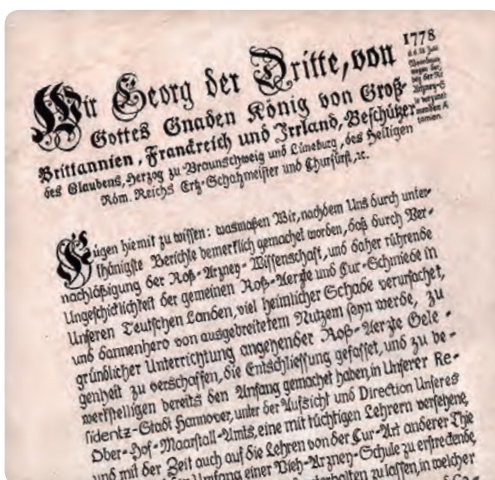 Wir Georg der Dritte, von
Gottes Gnaden König von Groß-
Brittannien, Franckreich und Irrland, Beschützer
des Glaubens, Herzog zu Braunschweig und Lüneburg, des Heiligen
Röm. Reichs Ertz-Schatzmeister und Churfürst, ꝛc.
1778
Fügen hiemit zu wissen: wasmaßen Wir, nachdem Uns durch unter-
thänigste Berichte bemerklich gemachet worden, daß durch Ver-
nachläßigung der Roß-Artzney-Wissenschaft, und daher rührende
Ungeschicklichkeit der gemeinen Roß-Aerzte und Cur-Schmiede in
Unseren Teutschen Landen, viel heimlicher Schade verursachet,
und dannenhero von ausgebreitetem Nutzem seyn werde, zu
gründlicher Unterrichtung angehender Roß-Aerzte Gele-
genheit zu verschaffen, die Entschliessung gefasset, und zu be-
werkstelligen bereits den Anfang gemachet haben, in Unserer Re-
sidentz-Stadt Hannover, unter der Aufsicht und Direction Unseres
Ober-Hof-Maarstall-Amts, eine mit tüchtigen Lehrern versehene,
und mit der Zeit auch auf die Lehren von der Cur-Art anderer Thie
Umfang einer Vieh-Artzney-Schule zu erstreckende,
zu lassen, in welcher